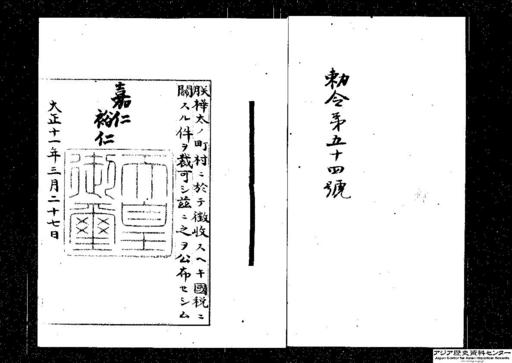 勅令第五十四號
朕樺太ノ町村ニ於テ徴收スヘキ國税ニ
關スル件ヲ裁可シ茲ニ之ヲ公布セシム
嘉仁
裕仁
天皇
御璽
大正十一年三月二十七日
アジア歴史資料センター
Japan Center for Asian Historical Records